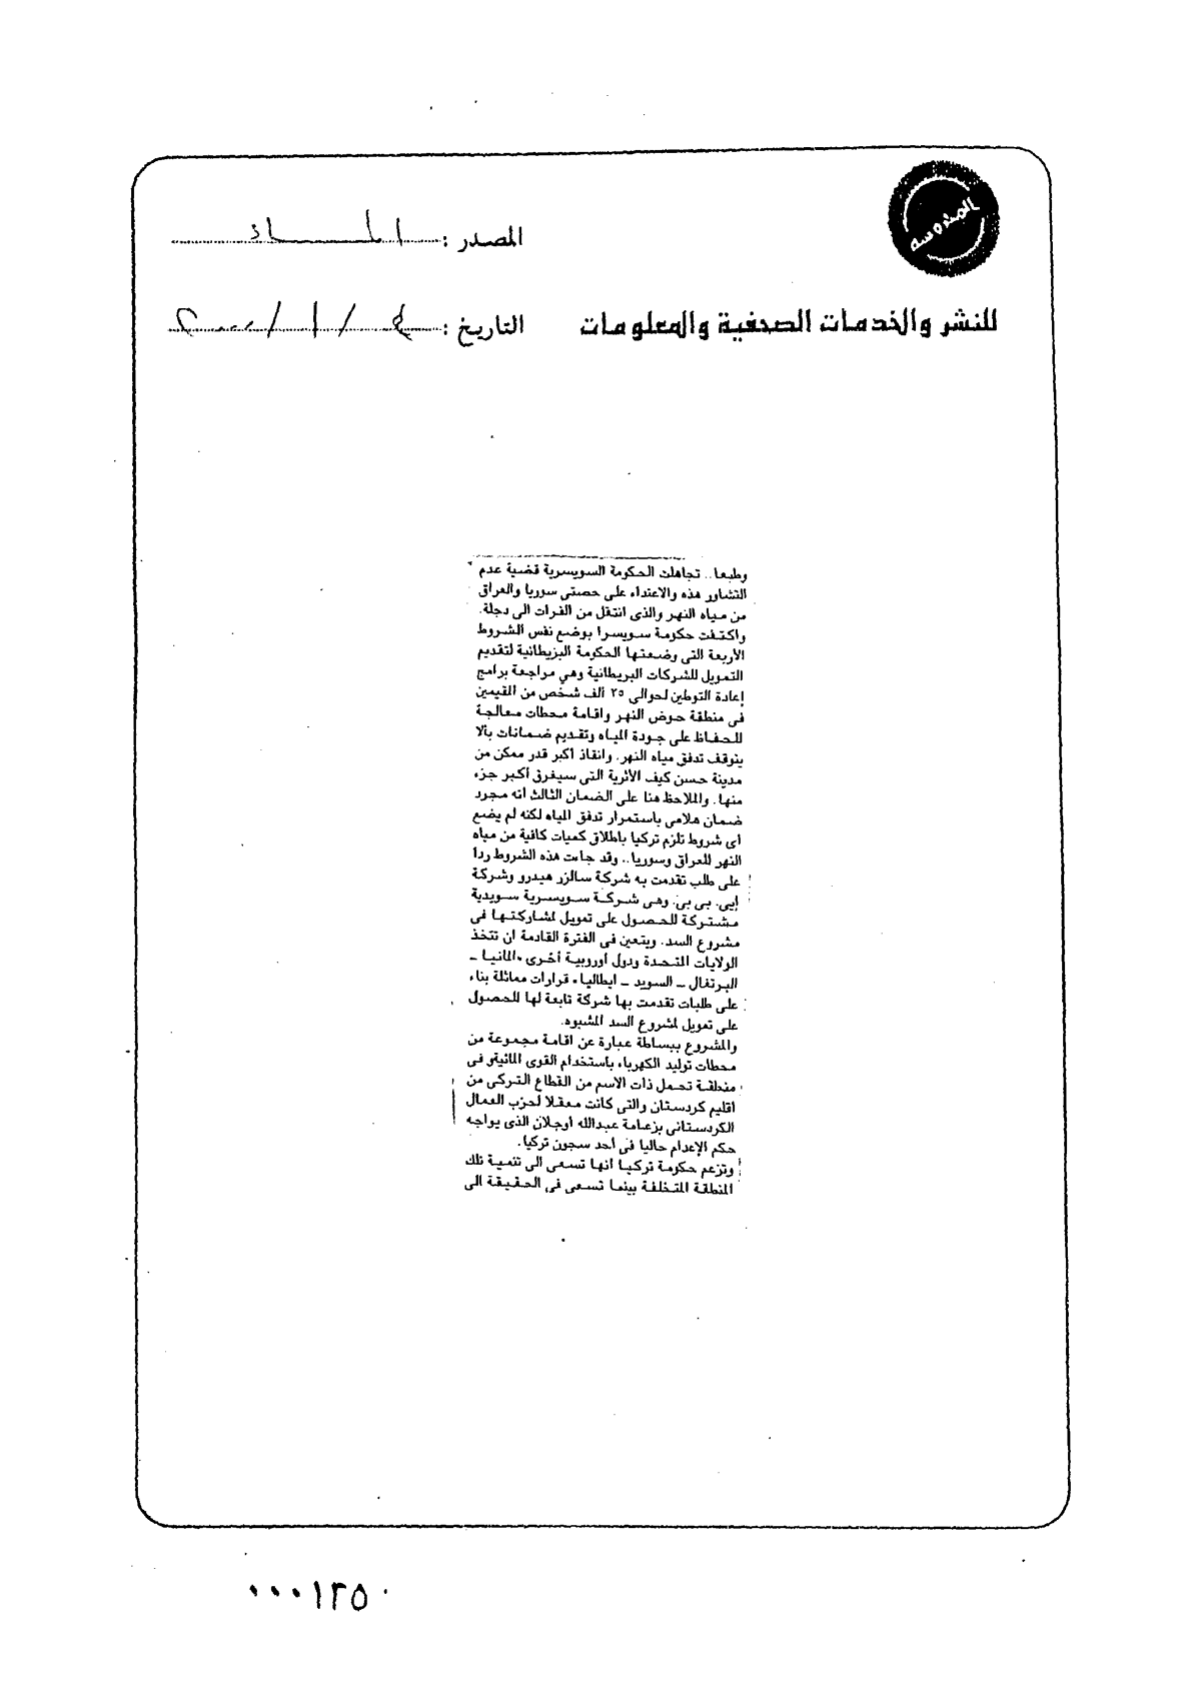 المحروسة
المصدر :
للنشر والخدمات الصحفية والمعلومات
التاريخ : ٤ / ١ / ٢٠٠٠
وطبعا.. تجاهلت الحكومة السويسرية قضية عدم
التشاور هذه والاعتداء على حصتى سوريا والعراق
من مياه النهر والذى انتقل من الفرات الى دجلة.
واكتفت حكومة سويسرا بوضع نفس الشروط
الأربعة التى وضعتها الحكومة البريطانية لتقديم
التمويل للشركات البريطانية وهي مراجعة برامج
إعادة التوطين لحوالى ٢٥ ألف شخص من المقيمين
فى منطقة حوض النهر واقامة محطات معالجة
للحفاظ على جودة المياه وتقديم ضمانات بألا
يتوقف تدفق مياه النهر. وانقاذ أكبر قدر ممكن من
مدينة حسن كيف الأثرية التى سيغرق أكبر جزء
منها. والملاحظ هنا على الضمان الثالث انه مجرد
ضمان هلامى باستمرار تدفق المياه لكنه لم يضع
اى شروط تلزم تركيا باطلاق كميات كافية من مياه
النهر للعراق وسوريا.. وقد جاءت هذه الشروط ردا
على طلب تقدمت به شركة سالزر هيدرو وشركة
إيى. بى بى. وهى شركة سويسرية سويدية
مشتركة للحصول على تمويل لمشاركتها فى
مشروع السد. ويتعين فى الفترة القادمة ان تتخذ
الولايات المتحدة ودول أوروبية أخرى «المانيا ــ
البرتغال ــ السويد ــ ايطاليا» قرارات مماثلة بناء
على طلبات تقدمت بها شركة تابعة لها للحصول
على تمويل لمشروع السد المشبوه.
والمشروع ببساطة عبارة عن اقامة مجموعة من
محطات توليد الكهرباء باستخدام القوى المائية فى
منطقة تحمل ذات الاسم من القطاع التركى من
اقليم كردستان والتى كانت معقلا لحزب العمال
الكردستانى بزعامة عبدالله أوجلان الذى يواجه
حكم الإعدام حاليا فى أحد سجون تركيا.
وتزعم حكومة تركيا انها تسعى الى تنمية تلك
المنطقة المتخلفة بينما تسعى فى الحقيقة الى
٠٠٠١٢٥٠